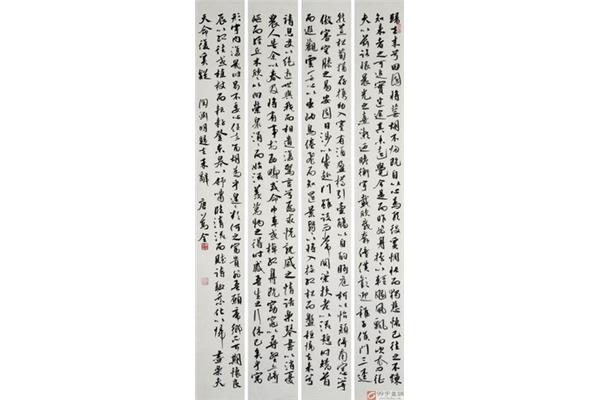 歸去來兮田園將蕪胡不歸既自以心為形役奚惆悵而獨悲悟已往之不諫
知來者之可追實迷途其未遠覺今是而昨非舟搖搖以輕颺風飄飄而吹衣問征
夫以前路恨晨光之熹微乃瞻衡宇載欣載奔僮僕歡迎稚子候門三逕
就荒松菊猶存攜幼入室有酒盈樽引壺觴以自酌眄庭柯以怡顏倚南窗以寄
傲審容膝之易安園日涉以成趣門雖設而常關策扶老以流憩時矯首
而遐觀雲無心以出岫鳥倦飛而知還景翳翳以將入撫孤松而盤桓歸去來兮
請息交以絕遊世與我而相違復駕言兮焉求悅親戚之情話樂琴書以消憂
農人告余以春及將有事於西疇或命巾車或棹孤舟既窈窕以尋壑亦崎
嶇而經丘木欣欣以向榮泉涓涓而始流羨萬物之得時感吾生之行休已矣乎寓
形宇內復幾時曷不委心任去留胡為乎遑遑欲何之富貴非吾願帝鄉不可期懷良
辰以孤往或植杖而耘耔登東皋以舒嘯臨清流而賦詩聊乘化以歸盡樂夫
天命復奚疑 陶淵明歸去來辭 唐萬全